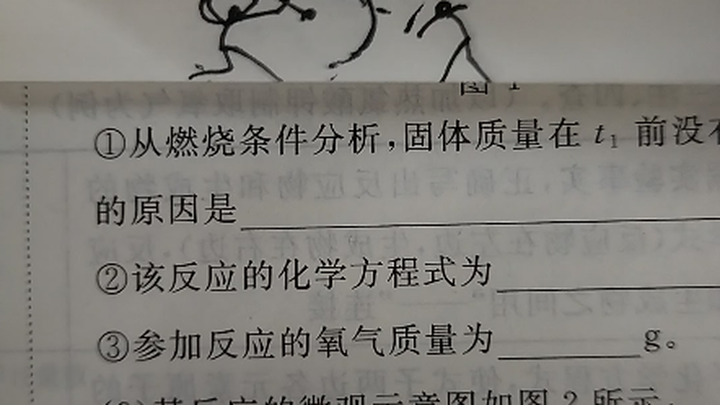 ①从燃烧条件分析,固体质量在 t₁ 前没
的原因是
②该反应的化学方程式为
③参加反应的氧气质量为 g。